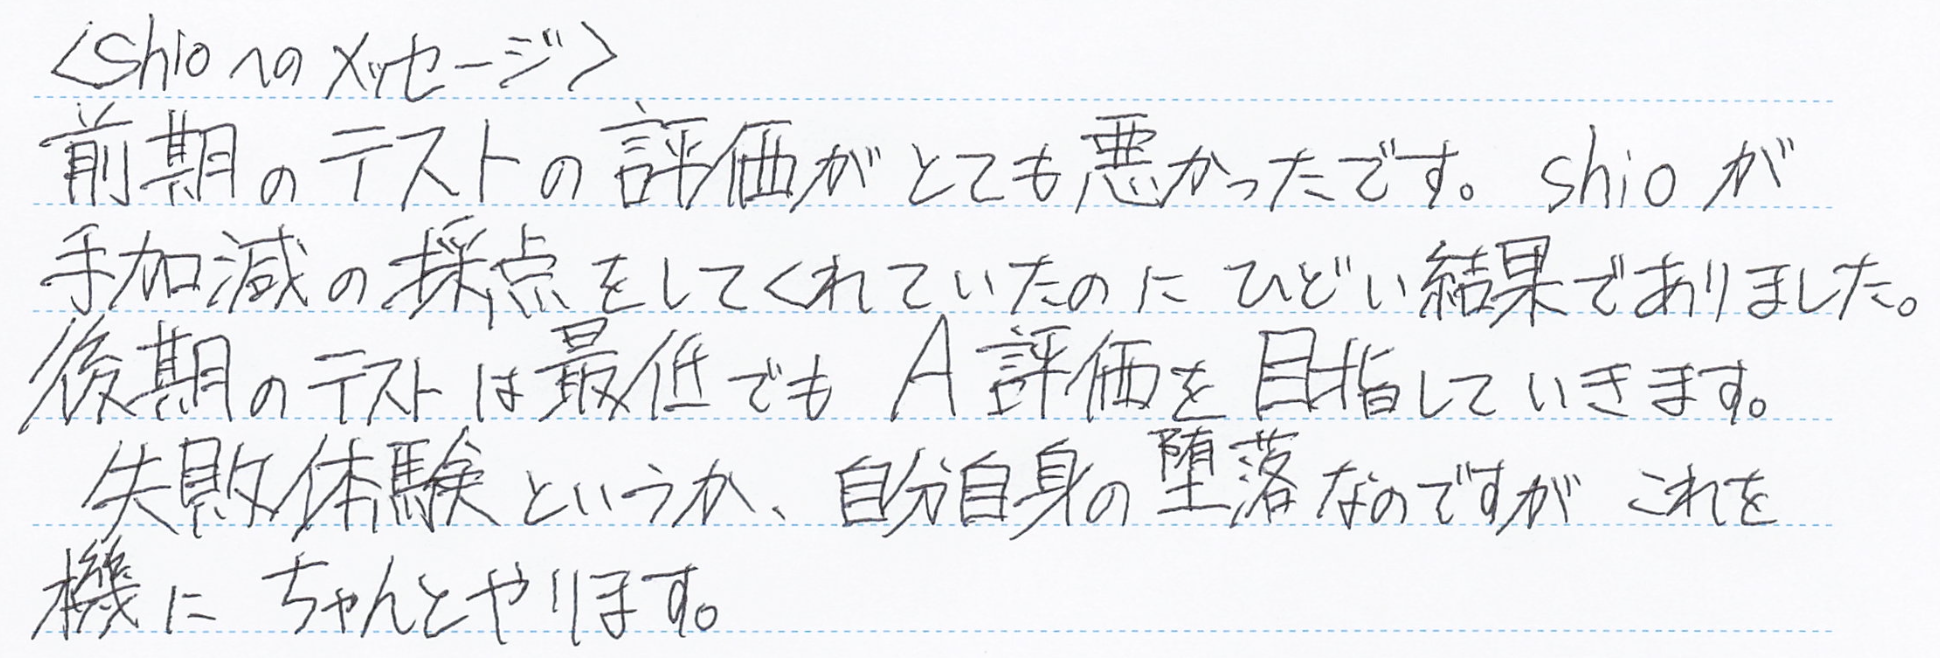 <shioへのメッセージ>
前期のテストの評価がとても悪かったです。shioが
手加減の採点をしてくれていたのにひどい結果でありました。
後期のテストは最低でもA評価を目指していきます。
失敗体験というか、自分自身の堕落なのですがこれを
機にちゃんとやります。